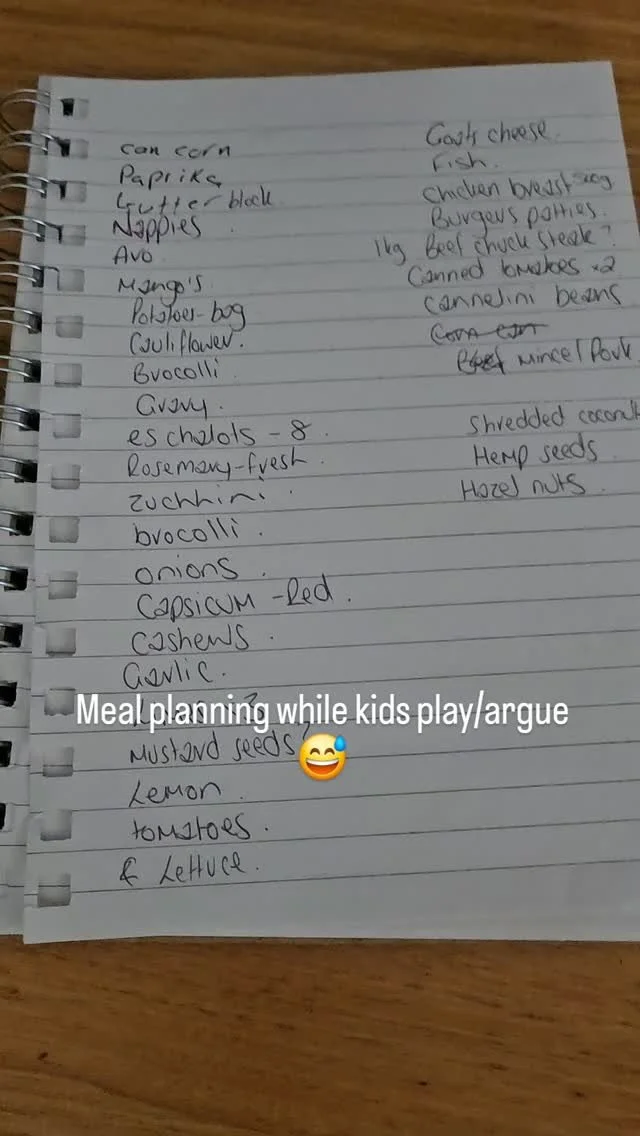 can corn
Paprika
Butter block
Nappies
Avo
Mango's
Potatoes-bag
Cauliflower.
Brocolli
Gravy.
eschalots - 8.
Rosemary-fresh
zuchhini.
brocolli.
onions.
Capsicum - Red.
Cashews.
Garlic.
Meal planning while kids play/argue 😅
Mustard seeds?
Lemon.
tomatoes.
& Lettuce.
Goats cheese.
Fish.
Chicken breast
Burgers patties.
1kg Beef chuck steak?
Canned tomatoes x2
Cannelini beans
Corn can
Beef Mince/Pork
Shredded coconut
Hemp seeds
Hazel nuts.